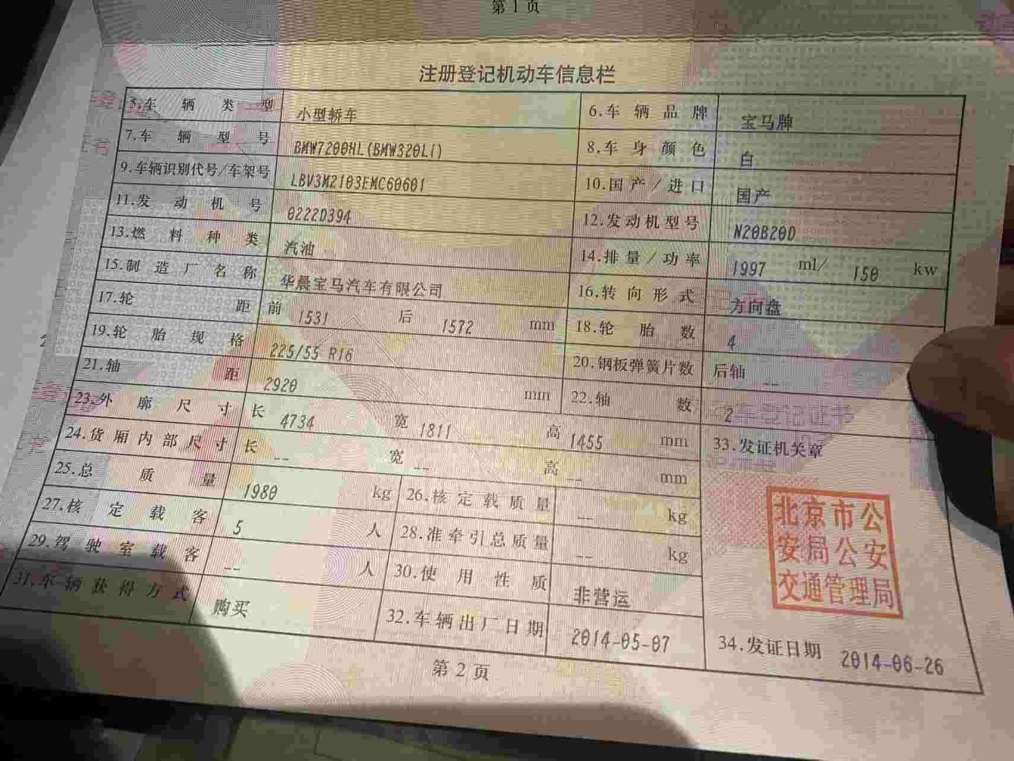 第1页
注册登记机动车信息栏
5.车辆类型 小型轿车 6.车辆品牌 宝马牌
7.车辆型号 BMW7200HL(BMW320Li) 8.车身颜色 白
9.车辆识别代号/车架号 LBV3M2103EMC60601 10.国产/进口 国产
11.发动机号 0222D394 12.发动机型号 N20B20D
13.燃料种类 汽油 14.排量/功率 1997 ml/ 150 kw
15.制造厂名称 华晨宝马汽车有限公司 16.转向形式 方向盘
17.轮距 前 1531 后 1572 mm 18.轮胎数 4
19.轮胎规格 225/55 R16 20.钢板弹簧片数 后轴 --
21.轴距 2920 mm 22.轴数 2
23.外廓尺寸 长 4734 宽 1811 高 1455 mm 33.发证机关章
24.货厢内部尺寸 长 -- 宽 -- 高 -- mm
25.总质量 1980 kg 26.核定载质量 -- kg
27.核定载客 5 人 28.准牵引总质量 -- kg
29.驾驶室载客 -- 人 30.使用性质 非营运
北京市公
安局公安
交通管理局
31.车辆获得方式 购买 32.车辆出厂日期 2014-05-07 34.发证日期 2014-06-26
第2页